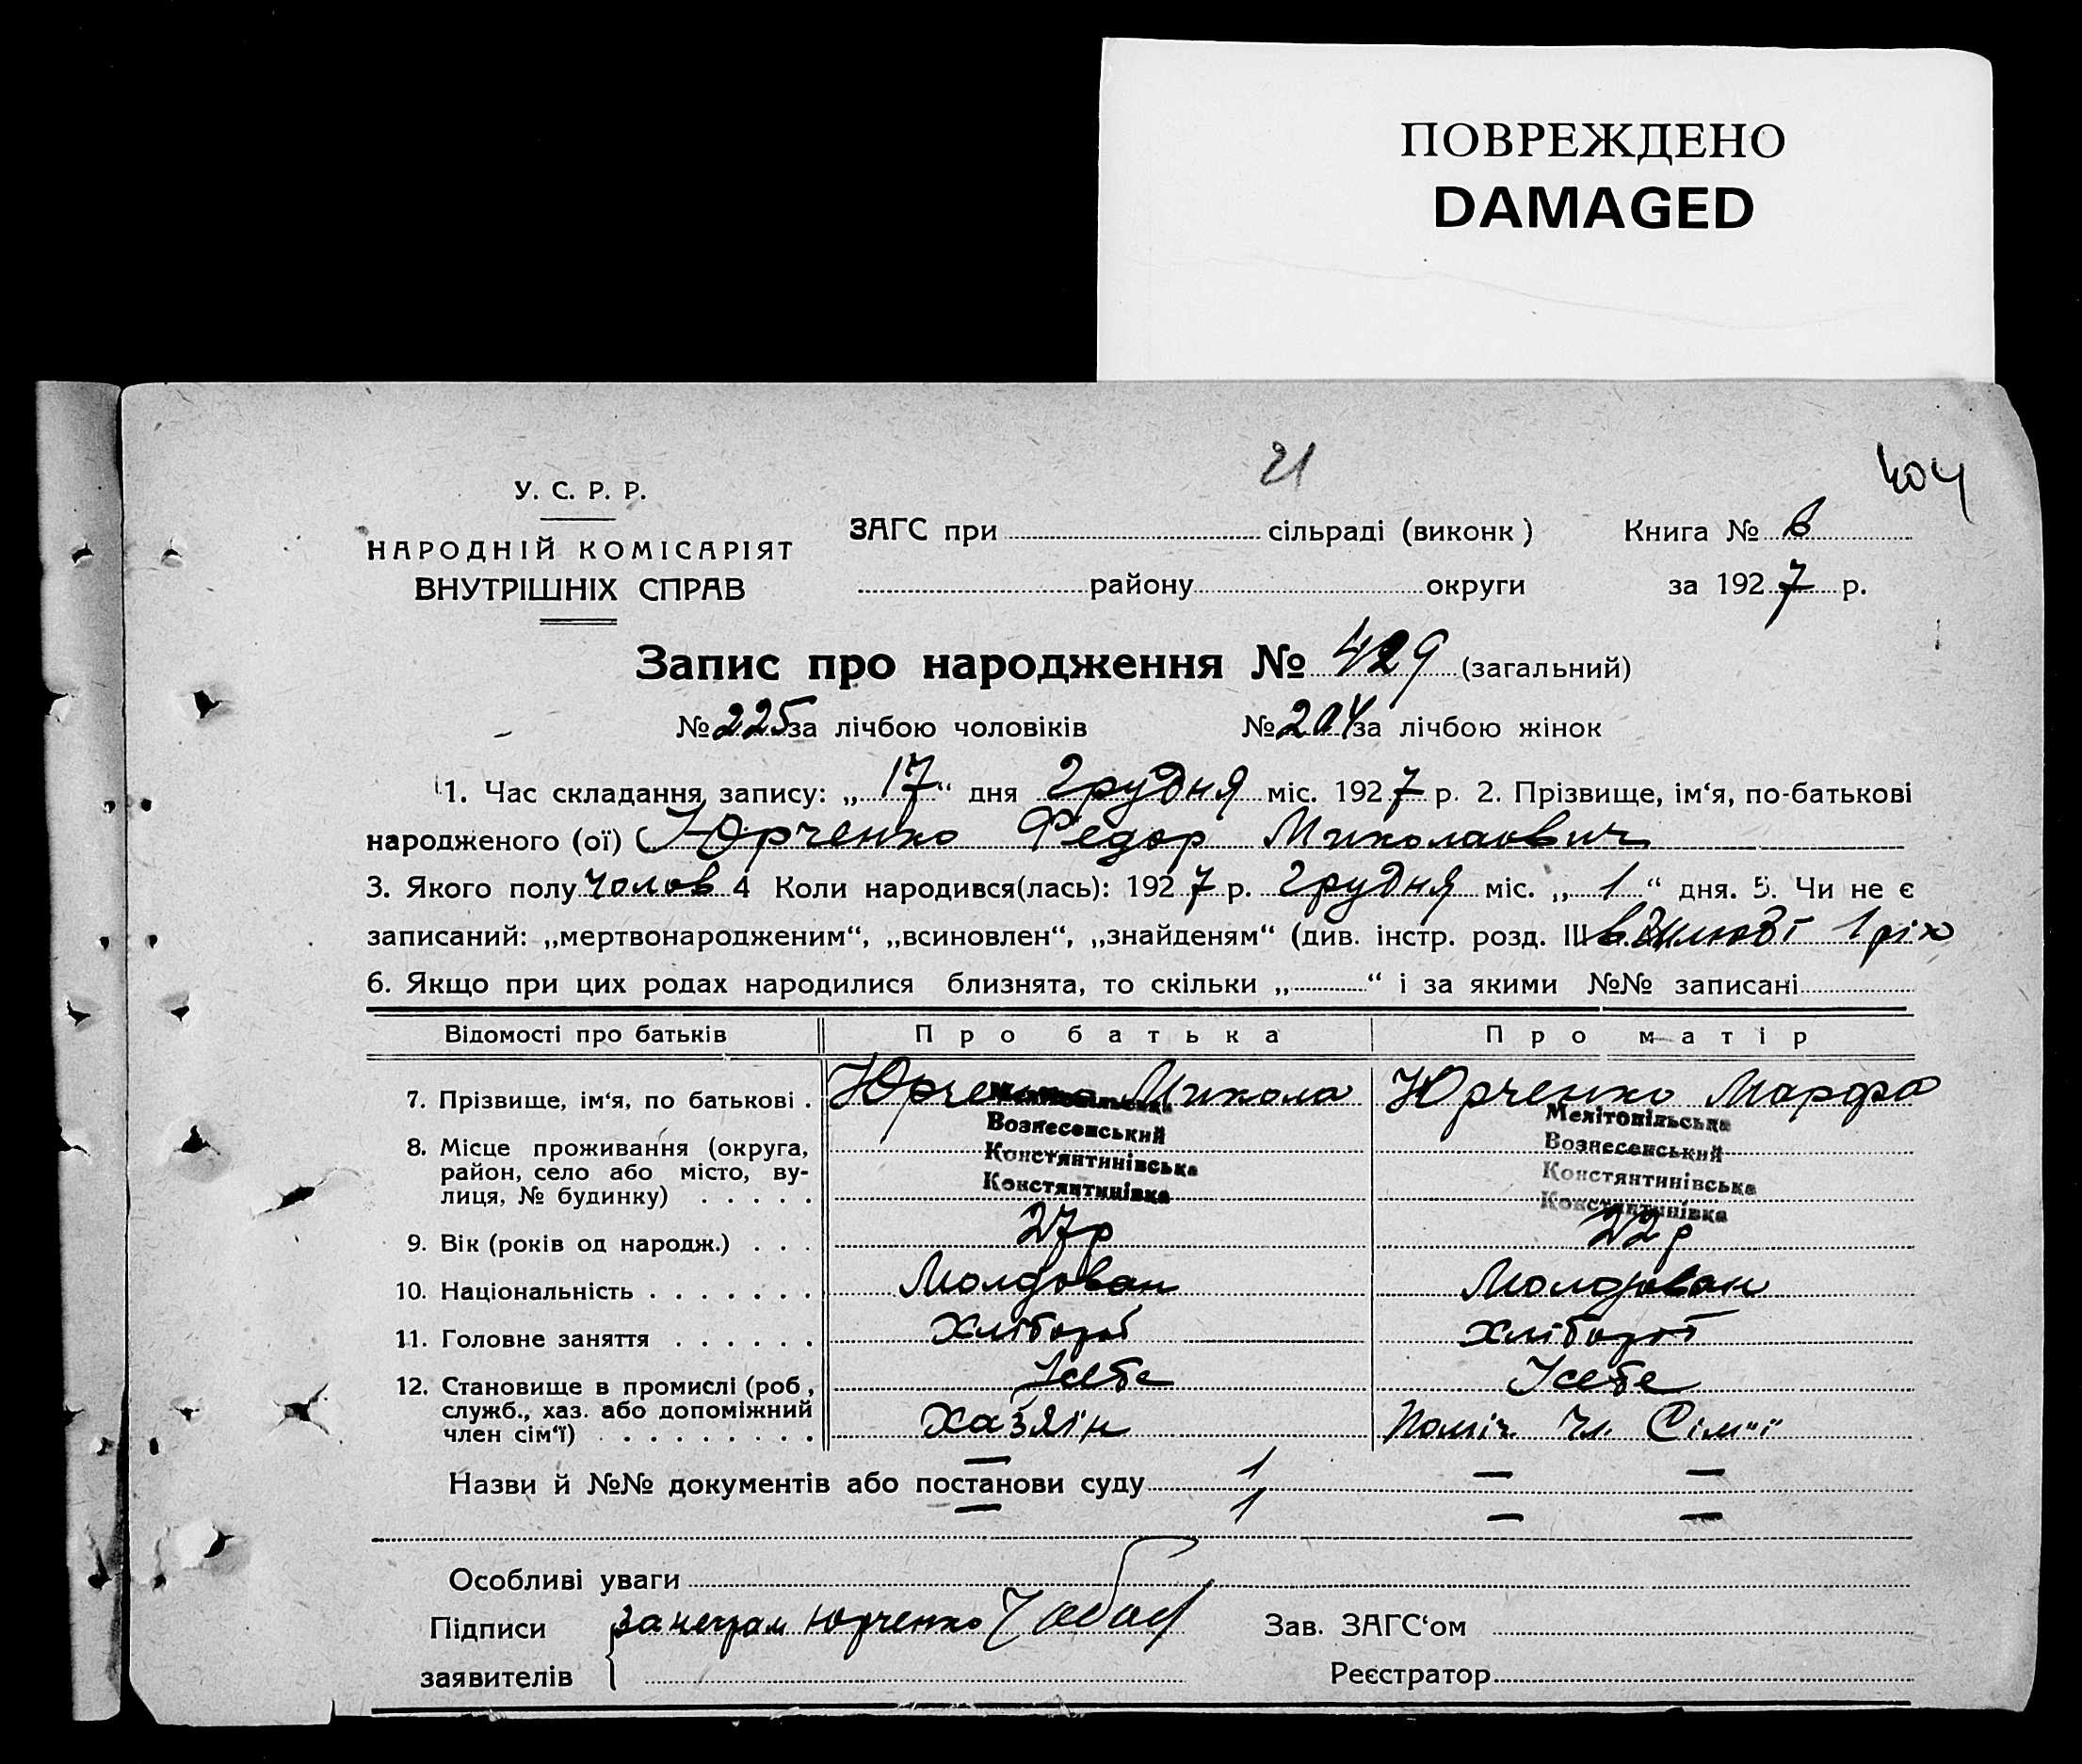 ПОВРЕЖДЕНО
DAMAGED
21
404
У. С. Р. Р.
НАРОДНІЙ КОМІСАРІЯТ
ВНУТРІШНІХ СПРАВ
ЗАГС при сільраді (виконк) Книга № 6
району округи за 1927 р.
Запис про народження № 429 (загальний)
№ 225 за лічбою чоловіків № 204 за лічбою жінок
1. Час складання запису: „17“ дня Грудня міс. 1927 р. 2. Прізвище, ім‘я, по-батькові
народженого (ої) Юрченко Федор Миколаович
3. Якого полу чолов 4 Коли народився(лась): 1927 р. Грудня міс. „1“ дня. 5. Чи не є
записаний: „мертвонародженим“, „всиновлен“, „знайденям“ (див. інстр. розд. III
6. Якщо при цих родах народилися близнята, то скільки „ “ і за якими №№ записані
Відомості про батьків Про батька Про матір
7. Прізвище, ім‘я, по батькові . Юрченко Микола Юрченко Марфа
Мелітопільська Мелітопільська
8. Місце проживання (округа, Вознесенський Вознесенський
район, село або місто, ву- Констянтинівська Констянтинівська
лиця, № будинку) . . . . . Констянтинівка Констянтинівка
9. Вік (років од народж.) . . . 27 р 22 р
10. Національність . . . . . . . Молдован Молдован
11. Головне заняття . . . . . . Хлібороб Хлібороб
12. Становище в промислі (роб, Усебе Усебе
служб., хаз. або допоміжний Хазяїн Поміч. чл. Сім"ї
член сім‘ї) . . . . . . . . .
Назви й №№ документів або постанови суду — 1 — —
— 1 — —
Особливі уваги
Підписи за неграм Юрченко Зав. ЗАГС‘ом
заявителів Реєстратор